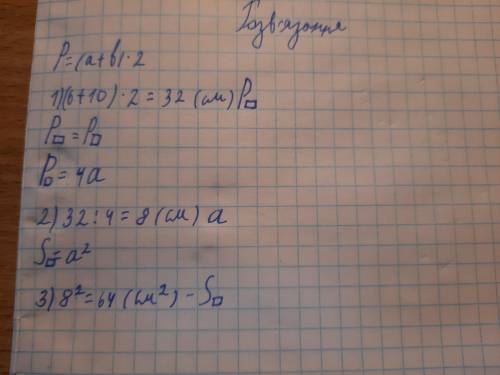 Розв'язання
P=(a+b)·2
1)(6+10)·2=32(см)P▭
P▭=P□
P□=4a
2)32:4=8(см) a
S□=a²
3)8²=64(см²)-S□